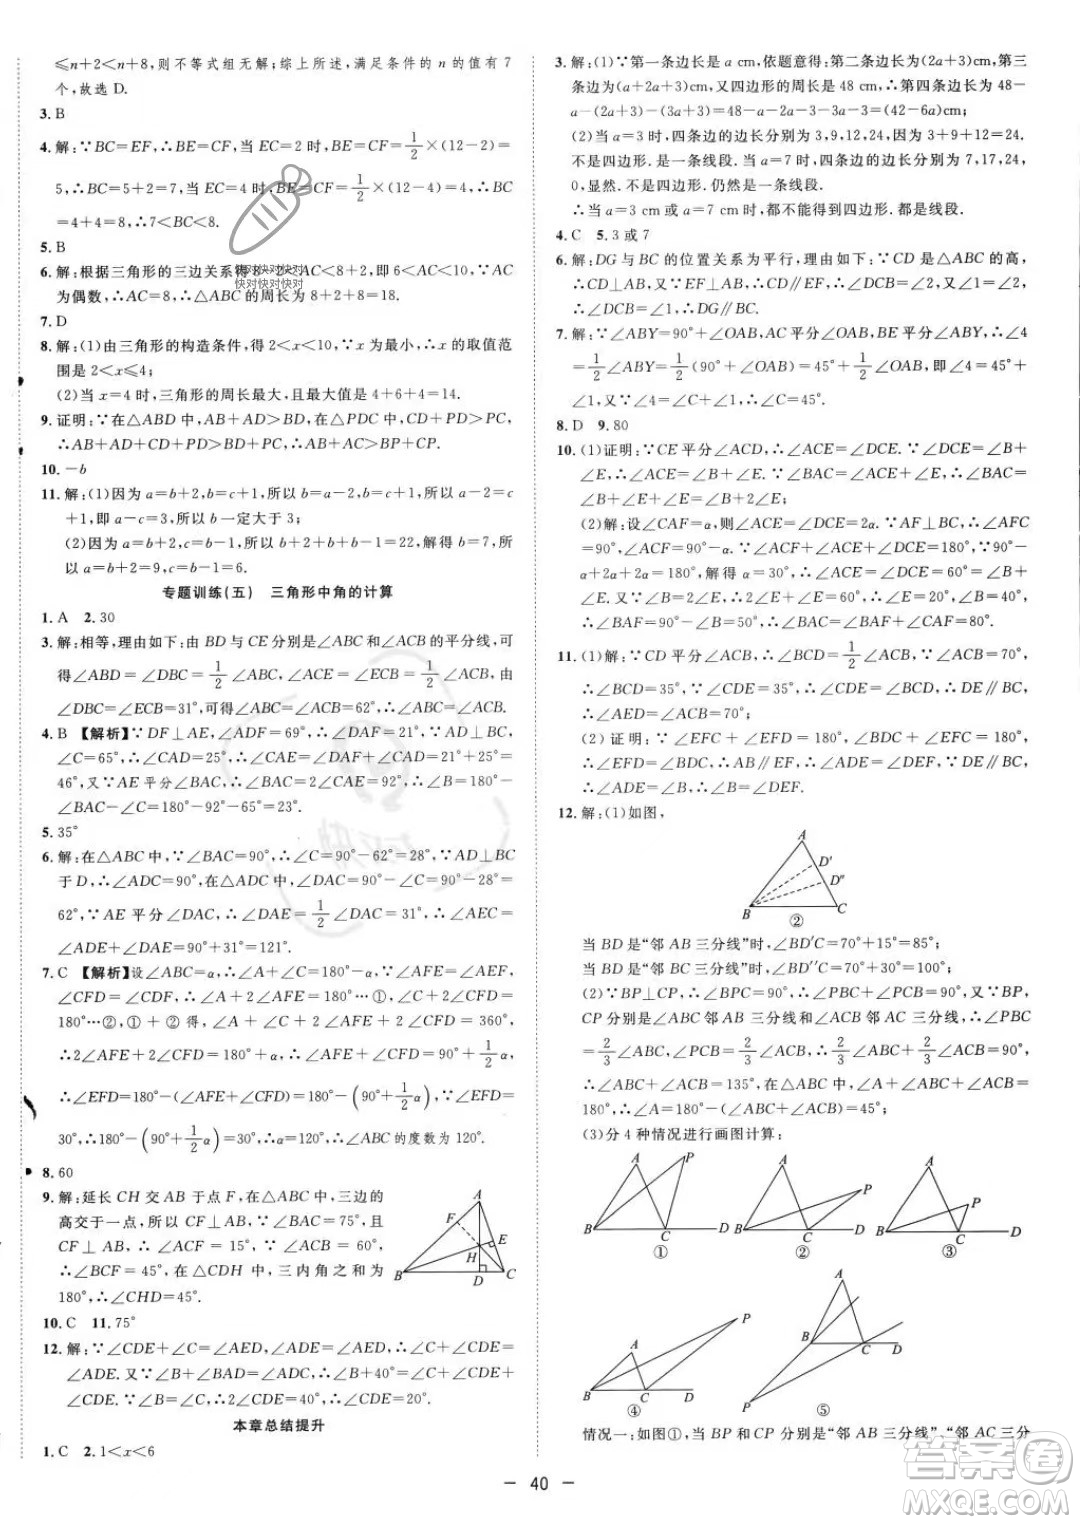 ≤n+2<n+8，则不等式组无解；综上所述，满足条件的 n 的值有 7
个，故选 D.
3. B
4. 解：∵BC=EF，∴BE=CF，当 EC=2 时，BE=CF=1/2×(12-2)=
5，∴BC=5+2=7，当 EC=4 时，BE=CF=1/2×(12-4)=4，∴BC
=4+4=8，∴7<BC<8.
5. B
6. 解：根据三角形的三边关系得 8-2<AC<8+2，即 6<AC<10，∵AC
为偶数，∴AC=8，∴△ABC 的周长为 8+2+8=18.
7. D
8. 解：(1)由三角形的构造条件，得 2<x<10，∵x 为最小，∴x 的取值范
围是 2<x≤4；
(2)当 x=4 时，三角形的周长最大，且最大值是 4+6+4=14.
9. 证明：∵在△ABD 中，AB+AD>BD，在△PDC 中，CD+PD>PC，
∴AB+AD+CD+PD>BD+PC，∴AB+AC>BP+CP.
10. -b
11. 解：(1)因为 a=b+2，b=c+1，所以 b=a-2，b=c+1，所以 a-2=c
+1，即 a-c=3，所以 b 一定大于 3；
(2)因为 a=b+2，b=c+1，所以 b+2+b+b-1=22，解得 b=7，所
以 a=b+2=9，c=b-1=6.
专题训练(五) 三角形中角的计算
1. A 2. 30
3. 解：相等，理由如下：由 BD 与 CE 分别是∠ABC 和∠ACB 的平分线，可
得∠ABD=∠DBC=1/2∠ABC，∠ACE=∠ECB=1/2∠ACB，由
∠DBC=∠ECB=31°，可得∠ABC=∠ACB=62°，∴∠ABC=∠ACB.
4. B 【解析】∵DF⊥AE，∠ADF=69°，∴∠DAF=21°，又∵∠ADC
=∠C=65°，∴∠CAD=25°，∴∠CAE=∠DAF+∠CAD=21°+25°=
46°，又∵AE 平分∠BAC，∴∠BAC=2∠CAE=92°，∴∠B=180°-
∠BAC-∠C=180°-92°-65°=23°.
5. 35°
6. 解：在△ABC 中，∵∠BAC=90°，∴∠C=90°-62°=28°，∵AD⊥BC
于 D，∴∠ADC=90°，在△ADC 中，∠DAC=90°-∠C=90°-28°=
62°，∵AE 平分∠DAC，∴∠DAE=1/2∠DAC=31°，∴∠AEC=
∠ADE+∠DAE=90°+31°=121°.
7. C 【解析】设∠ABC=α，∴∠A+∠C=180°-α，∵∠AFE=∠AEF，
∠CFD=∠CDF，∴∠A+2∠AFE=180°…①，∠C+2∠CFD=
180°…②，①+②得，∠A+∠C+2∠AFE+2∠CFD=360°，
∴2∠AFE+2∠CFD=180°+α，∴∠AFE+∠CFD=90°+1/2α，
∴∠EFD=180°-(∠AFE+∠CFD)=180°-(90°+1/2α)，∵∠EFD=
30°，∴180°-(90°+1/2α)=30°，∴α=120°，∴∠ABC 的度数为 120°.
8. 60
9. 解：延长 CH 交 AB 于点 F，在△ABC 中，三边的
高交于一点，所以 CF⊥AB，∵∠BAC=75°，且
CF⊥AB，∴∠ACF=15°，∵∠ACB=60°，
∴∠BCF=45°，在△CDH 中，三内角之和为
180°，∴∠CHD=45°.
A F E H B D C
10. C 11. 75°
12. 解：∵∠CDE+∠C=∠AED，∠AED=∠ADE，∴∠CDE+∠C=
∠ADE.又∵∠B+∠BAD=∠ADC，∴∠B+40°=∠C+∠CDE+
∠CDE，∵∠B=∠C，∴2∠CDE=40°，∴∠CDE=20°.
本章总结提升
1. C 2. 1<x<6
3. 解：(1)∵第一条边长是 a cm，依题意得：第二条边长为(2a+3)cm，第三
条边长为(a+2a+3)cm，又四边形的周长是 48 cm，∴第四条边长为 48-
a-(2a+3)-(3a+3)=48-a-2a-3-3a-3=(42-6a)cm；
(2)当 a=3 时，四条边的边长分别为 3，9，12，24，∵3+9+12=24，显然
不是四边形，是线段；当 a=7 时，四条边的边长分别为 7，17，24，
0，显然.不是四边形.仍然是一条线段.
∴当 a=3 cm 或 a=7 cm 时，都不能得到四边形.都是线段.
4. C 5. 3 或 7
6. 解：DG 与 BC 的位置关系为平行，理由如下：∵CD 是△ABC 的高，
∴CD⊥AB，又∵EF⊥AB，∴CD∥EF，∴∠2=∠DCB，又∵∠1=∠2，
∴∠DCB=∠1，∴DG∥BC.
7. 解：∵∠ABY=90°+∠OAB，AC 平分∠OAB，BE 平分∠ABY，∴∠4
=1/2∠ABY=1/2(90°+∠OAB)=45°+1/2∠OAB，即∠4=45°+
∠1，又∵∠4=∠1+∠C，∴∠C=45°.
8. D 9. 80
10. (1)证明：∵CE 平分∠ACD，∴∠ACE=∠DCE.∵∠DCE=∠B+
∠E，∴∠ACE=∠B+∠E，∵∠BAC=∠ACE+∠E，∴∠BAC
=∠B+∠E+∠E=∠B+2∠E；
(2)解：设∠CAF=α，则∠ACE=∠DCE=2α.∵AF⊥BC，∴∠AFC
=90°，∵∠ACF+∠ACE+∠DCE=180°，∴∠ACF=180°-4α，
∵∠AFC=90°，∴α+180°-4α=90°，∴α=30°，∴∠DCE=60°，∵AB
∥CE，∴∠B=∠DCE=60°，∵∠AFB=90°，∴∠B+∠BAF=90°，
∴∠BAF=90°-∠B=90°-60°=30°.
11. (1)解：∵CD 平分∠ACB，∴∠BCD=1/2∠ACB，∵∠ACB=70°，
∴∠BCD=35°，∵∠CDE=35°，∴∠CDE=∠BCD，∴DE∥BC，
∴∠AED=∠ACB=70°；
(2)证明：∵∠EFC+∠EFD=180°，∠BDC+∠EFC=180°，
∴∠EFD=∠BDC，∴AB∥EF，∴∠ADE=∠DEF，∵DE∥BC，
∴∠ADE=∠B，∴∠B=∠DEF.
12. 解：(1)如图，
A D′ D″ B C ②
当 BD 是“邻 AB 三分线”时，∠BD′C=70°+15°=85°；
当 BD 是“邻 BC 三分线”时，∠BD″C=70°+30°=100°；
(2)∵BP⊥CP，∴∠BPC=90°，∴∠PBC+∠PCB=90°，又∵BP、
CP 分别是∠ABC 邻 AB 三分线和∠ACB 邻 AC 三分线，∴∠PBC
=2/3∠ABC，∠PCB=2/3∠ACB，∴2/3∠ABC+2/3∠ACB=90°，
∴∠ABC+∠ACB=135°，在△ABC 中，∠A+∠ABC+∠ACB=
180°，∴∠A=180°-(∠ABC+∠ACB)=45°；
(3)分 4 种情况进行画图计算：
A P B C D ①
A P B C D ②
A P B C D ③
A P B C D ④
A B C D P ⑤
情况一：如图①，当 BP 和 CP 分别是“邻 AB 三分线”、“邻 AC 三分
— 40 —
快对快对快对
快对快对快对
答案圈
MXQE.COM